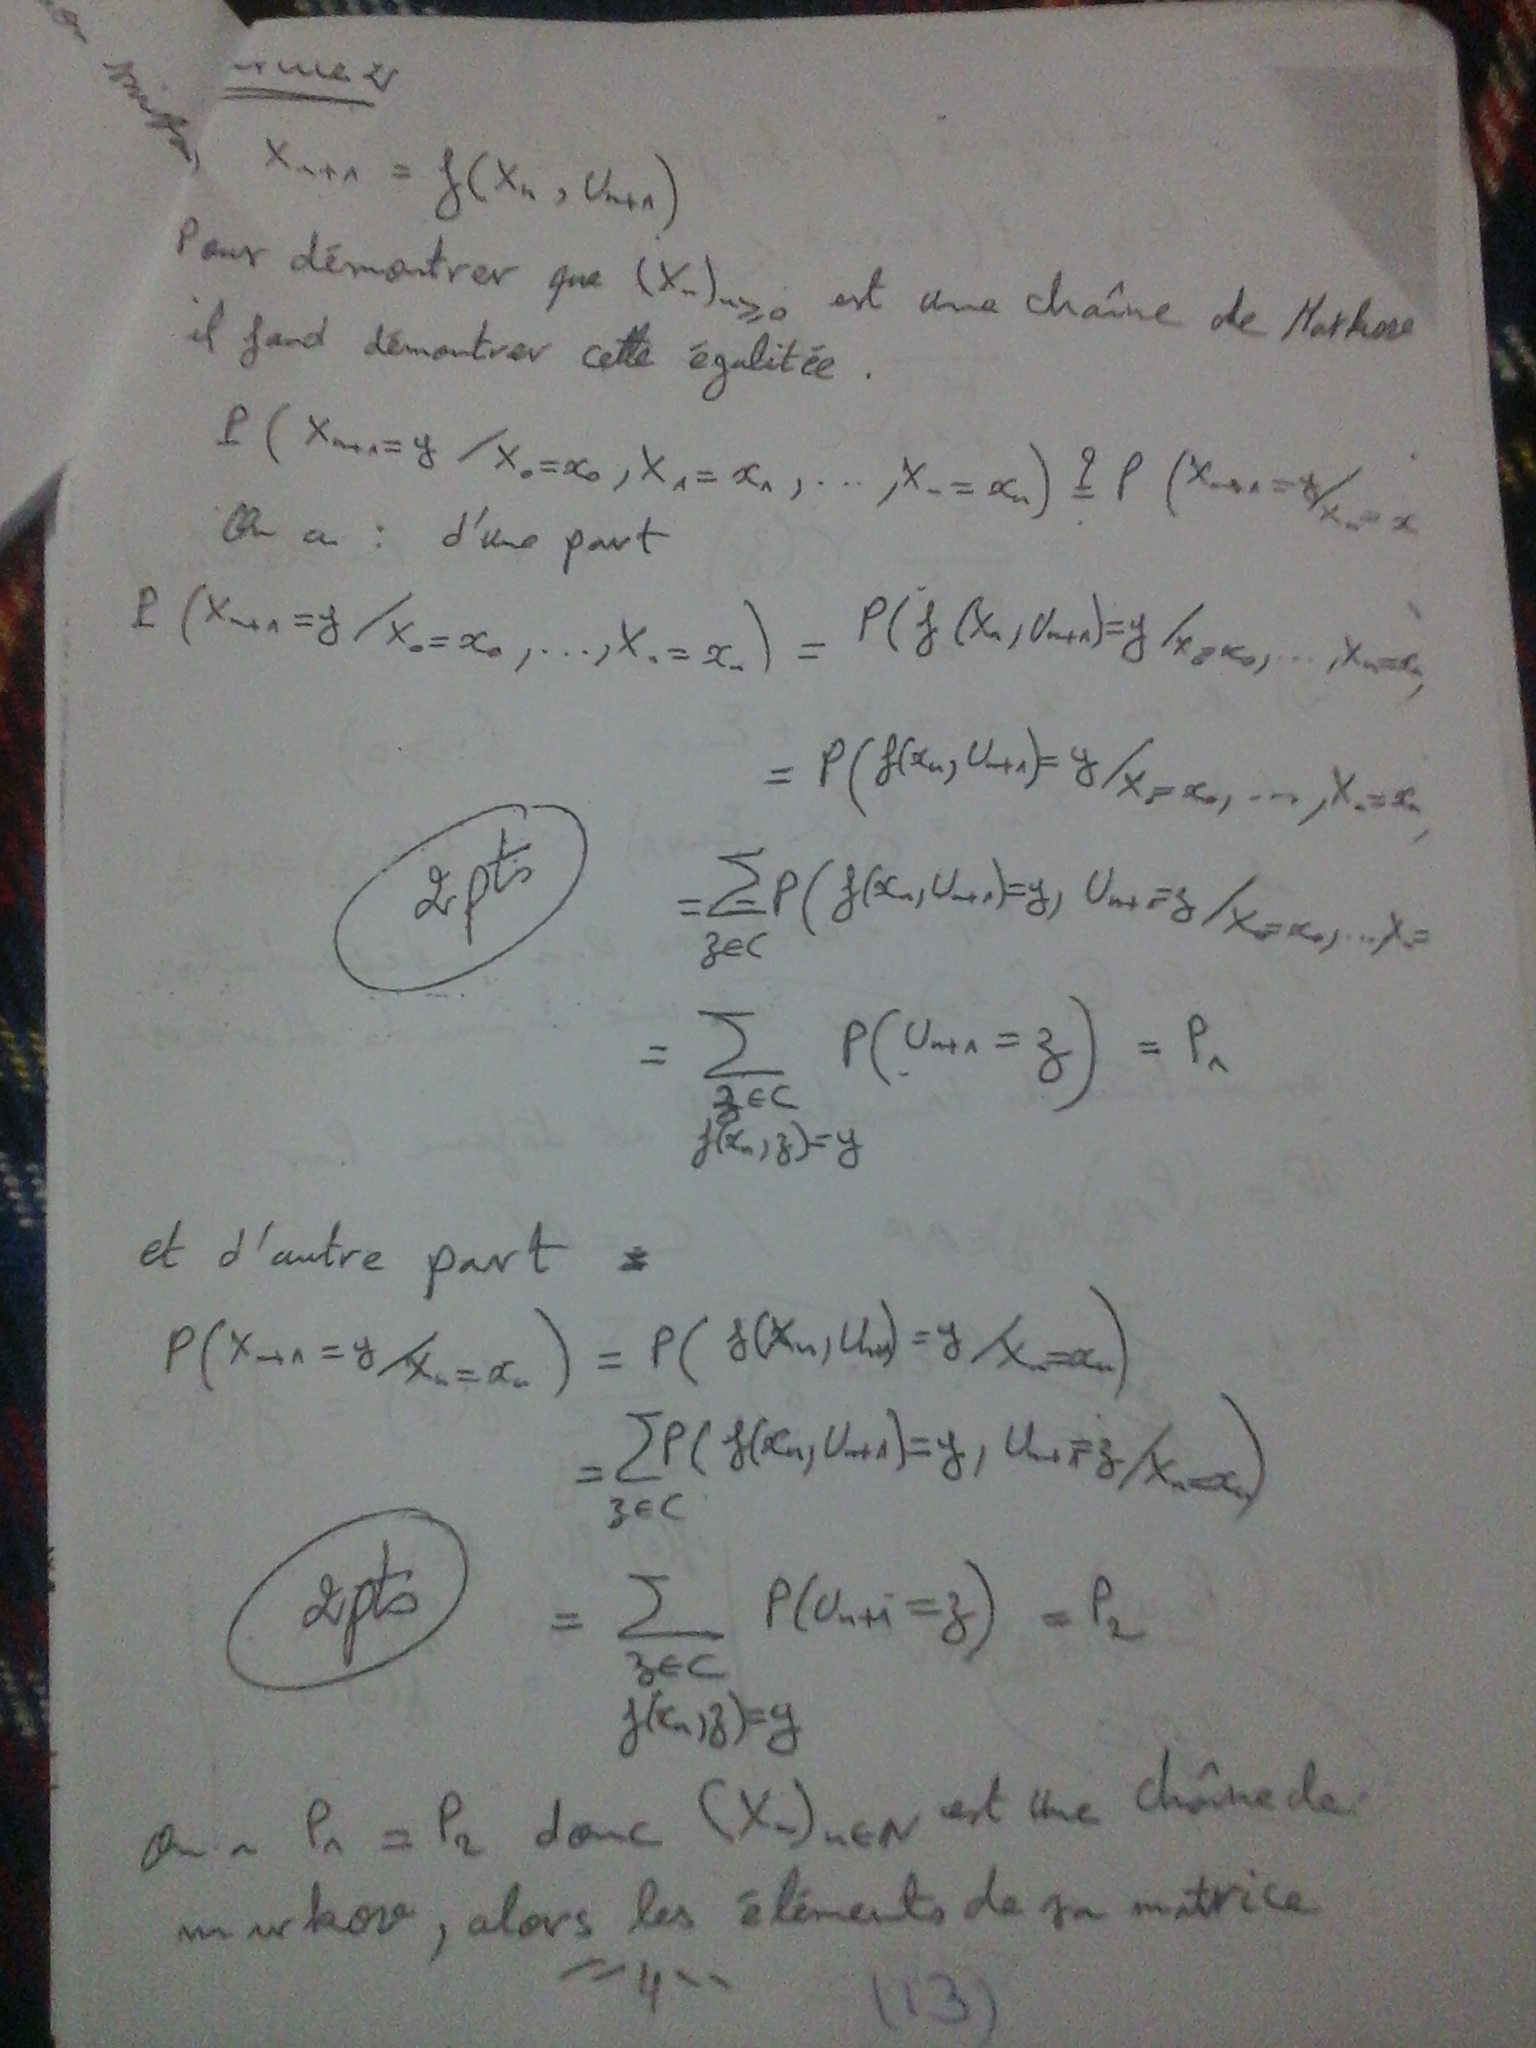 X_{n+1} = f(X_n, U_{n+1})
Pour démontrer que (X_n)_{n≥0} est une chaîne de Markov
il faud démontrer cette égalitée.
P(X_{n+1}=y / X_0=x_0, X_1=x_1, ..., X_n=x_n) ?= P(X_{n+1}=y / X_n=x
On a : d'une part
P(X_{n+1}=y / X_0=x_0, ..., X_n=x_n) = P(f(X_n, U_{n+1})=y / X_0=x_0, ..., X_n=x_n
= P(f(x_n, U_{n+1})=y / X_0=x_0, ..., X_n=x_n
2pts
= ∑_{z∈C} P(f(x_n, U_{n+1})=y, U_{n+1}=z / X_0=x_0, ... X_n=
= ∑_{z∈C, f(x_n, z)=y} P(U_{n+1}=z) = P_1
et d'autre part :
P(X_{n+1}=y / X_n=x_n) = P(f(X_n, U_{n+1})=y / X_n=x_n)
= ∑_{z∈C} P(f(x_n, U_{n+1})=y, U_{n+1}=z / X_n=x_n)
2pts
= ∑_{z∈C, f(x_n, z)=y} P(U_{n+1}=z) = P_2
On a P_1 = P_2 donc (X_n)_{n∈N} est une chaîne de
markov, alors les éléments de sa matrice
4
(13)